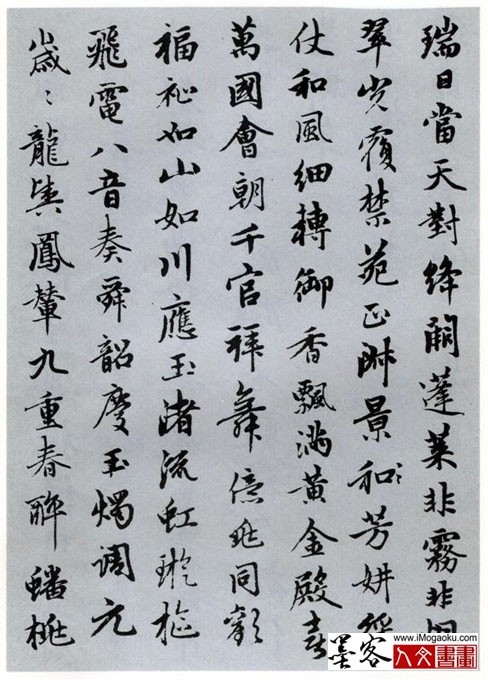 瑞日當天對絳闕蓬萊非霧非烟
翠光覆禁苑正淑景和芳妍綵
仗和風細轉御香飄滿黃金殿喜
萬國會朝千官拜舞億兆同歡
福祉如山如川應玉渚流虹璇樞
飛電八音奏舜韶慶玉燭調元
歲〻龍輿鳳輦九重春醉蟠桃
墨客
www.iMogaoku.com
人文書畫